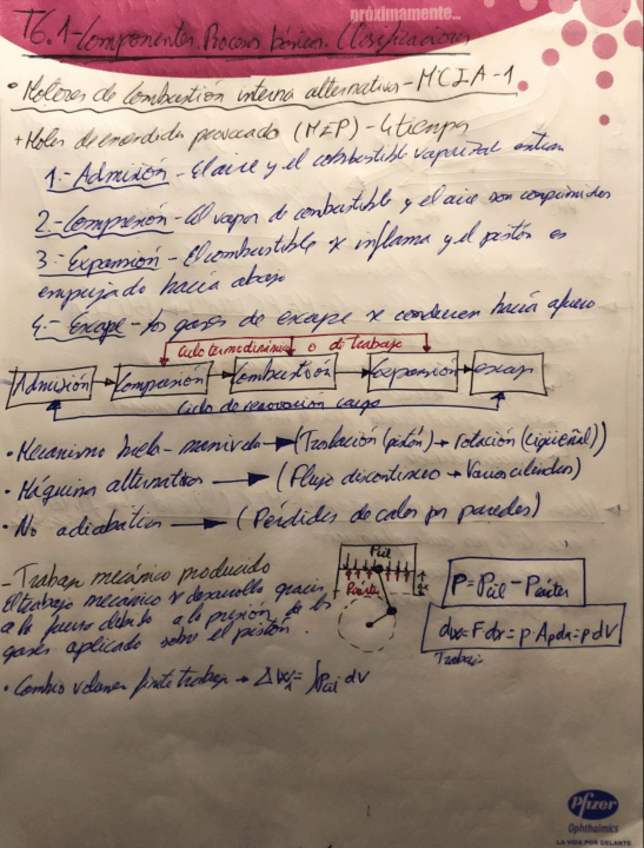 próximamente...
T6.1-Componentes. Procesos básicos. Clasificaciones
• Motores de combustión interna alternativos - MCIA - 1
+ Motores de encendido provocado (MEP) - 4 tiempos
1.- Admisión - El aire y el combustible vaporizado entran
2.- Compresión - El vapor de combustible y el aire son comprimidos
3.- Expansión - El combustible se inflama y el pistón es
empujado hacia abajo
4.- Escape - Los gases de escape se conducen hacia afuera
Ciclo termodinámico o de trabajo
Admisión → Compresión → Combustión → Expansión → escape
Ciclo de renovación carga
• Mecanismo biela-manivela → (Traslación (pistón) → rotación (cigüeñal))
• Máquina alternativa → (Flujo discontinuo → Varios cilindros)
• No adiabático → (Pérdidas de calor por paredes)
- Trabajo mecánico producido
El trabajo mecánico se desarrolla gracias
a la fuerza debido a la presión de los
gases aplicado sobre el pistón.
Pcil
Pcárter
dx
P = Pcil - Pcárter
dw = F dx = p · Ap dx = p dV
Trabajo
• Cambio volumen finito trabajo → ΔW = ∫Pcil dV
Pfizer
Ophthalmics
LA VIDA POR DELANTE